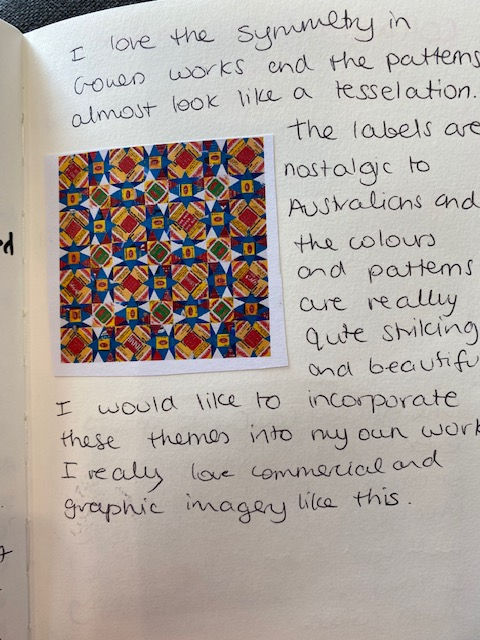 I love the symmetry in
Gowers works and the patterns
almost look like a tesselation.
The labels are
nostalgic to
Australians and
the colours
and patterns
are really
qute striking
and beautifu
I would like to incorporate
these themes into my own work
I realy love commercial and
graphic imagery like this.